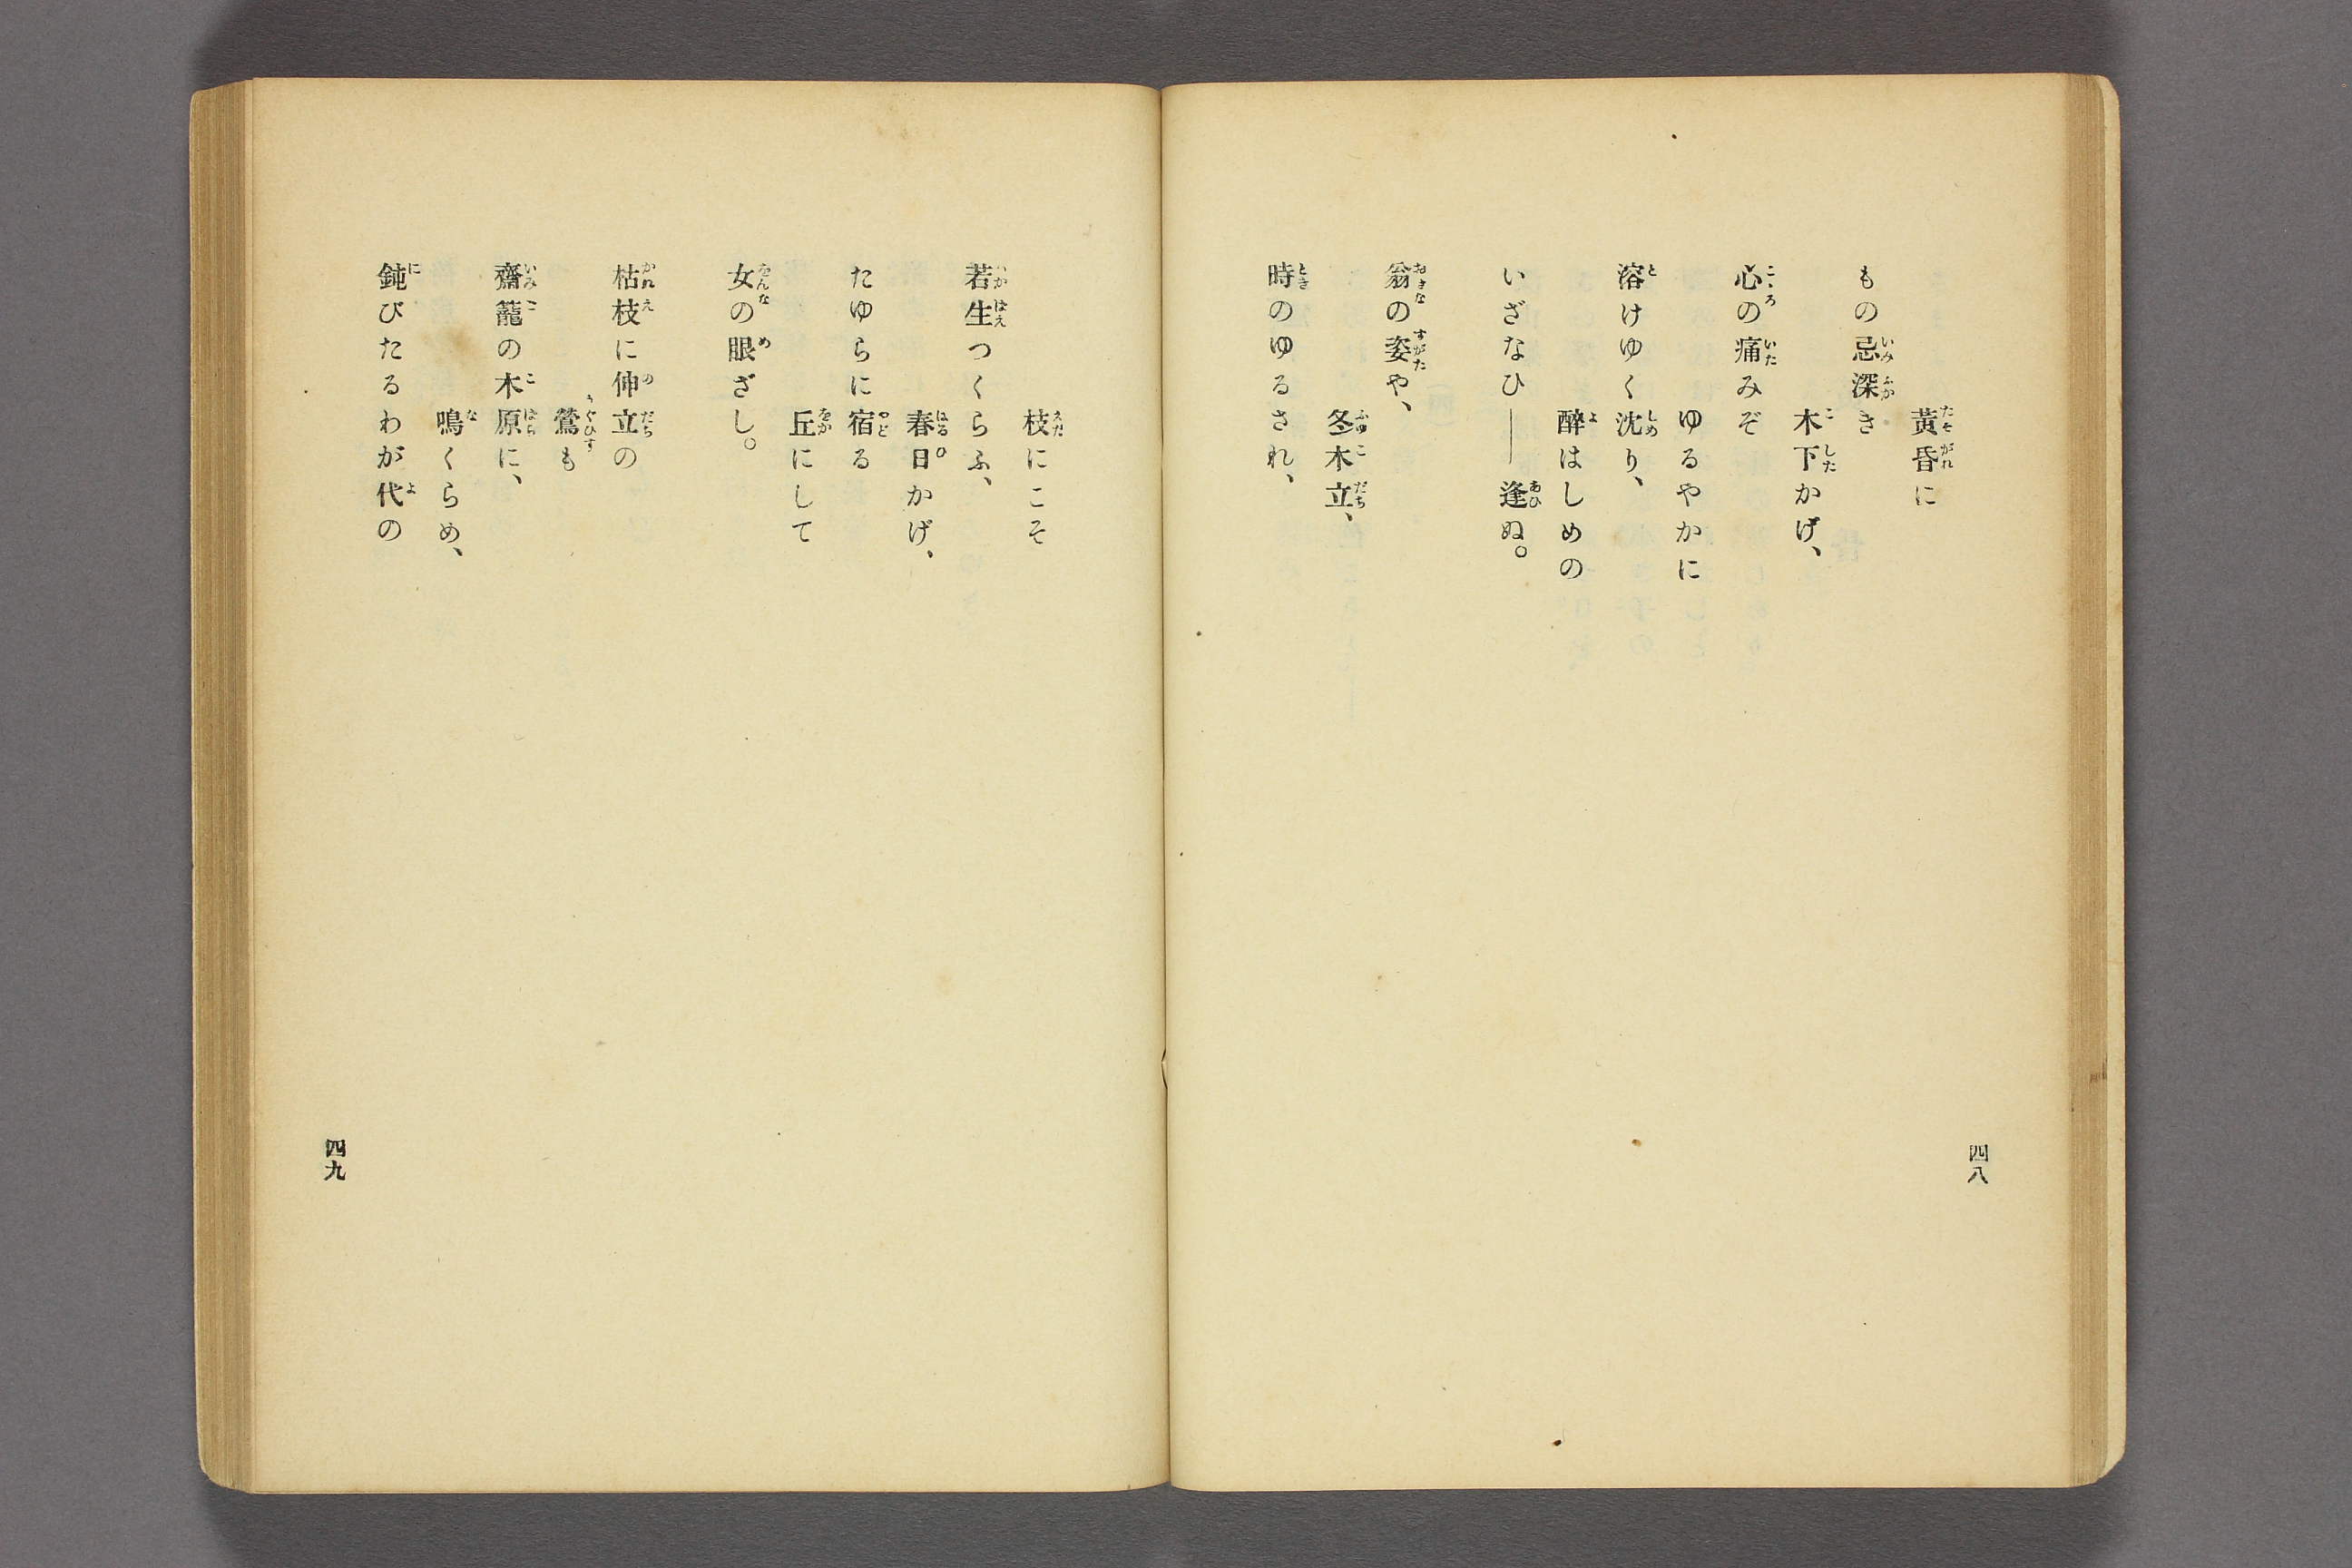 黄昏に
もの忌深き
木下かげ、
心の痛みぞ
ゆるやかに
溶けゆく沈り、
醉はしめの
いざなひ――逢ぬ。
翁の姿や、
冬木立、
時のゆるされ、
四八
枝にこそ
若生つくらふ、
春日かげ、
たゆらに宿る
丘にして
女の眼ざし。
枯枝に伸立の
鶯も
齋籠の木原に、
鳴くらめ、
鈍びたるわが代の
四九